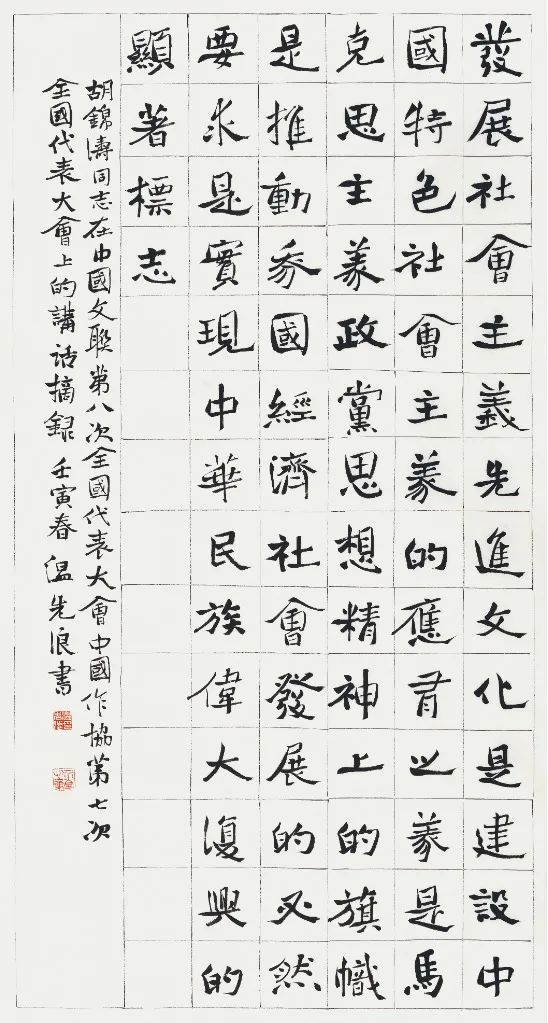 發展社會主義先進文化是建設中
國特色社會主義的應有之義是馬
克思主義政黨思想精神上的旗幟
是推動我國經濟社會發展的必然
要求是實現中華民族偉大復興的
顯著標志
胡錦濤同志在中國文聯第八次全國代表大會中國作協第七次
全國代表大會上的講話摘録 壬寅春 温先浪書